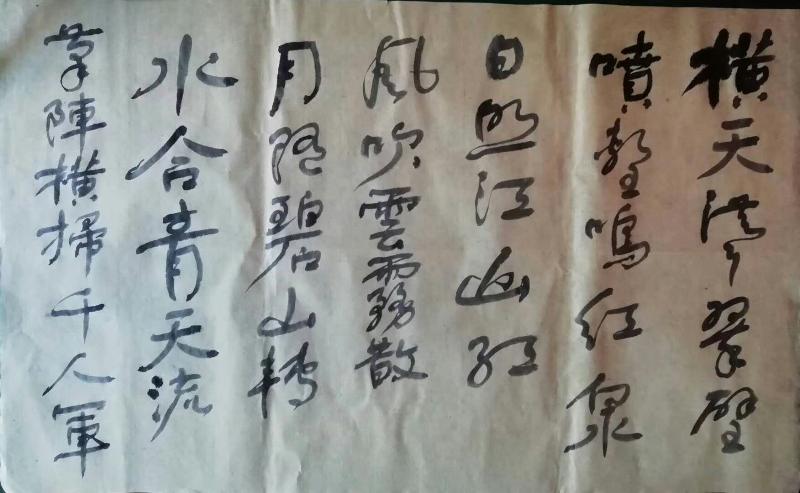 横天聳翠壁
噴壑鳴紅泉
日照江紅
風吹雲霧散
月隨碧山轉
水合青天流
筆陣横掃千人軍